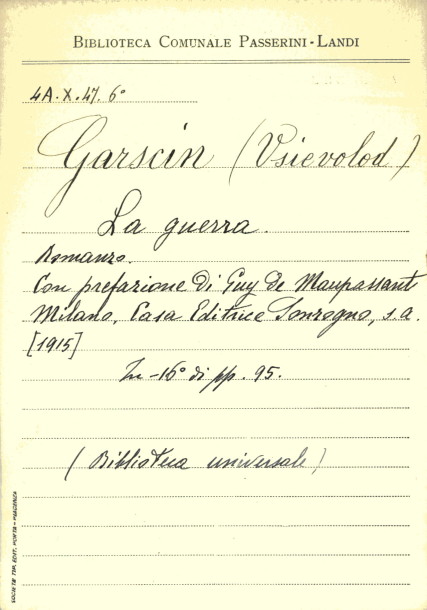 BIBLIOTECA COMUNALE PASSERINI-LANDI
4A.X.47.6°
Garscin (Vsievolod)
La guerra.
Romanzo.
Con prefazione di Guy de Maupassant
Milano, Casa Editrice Sonzogno, s.a.
[1915]
In-16° di pp. 95.
(Biblioteca universale)
SOCIETÀ TIP. EDIT. PORTA - PIACENZA